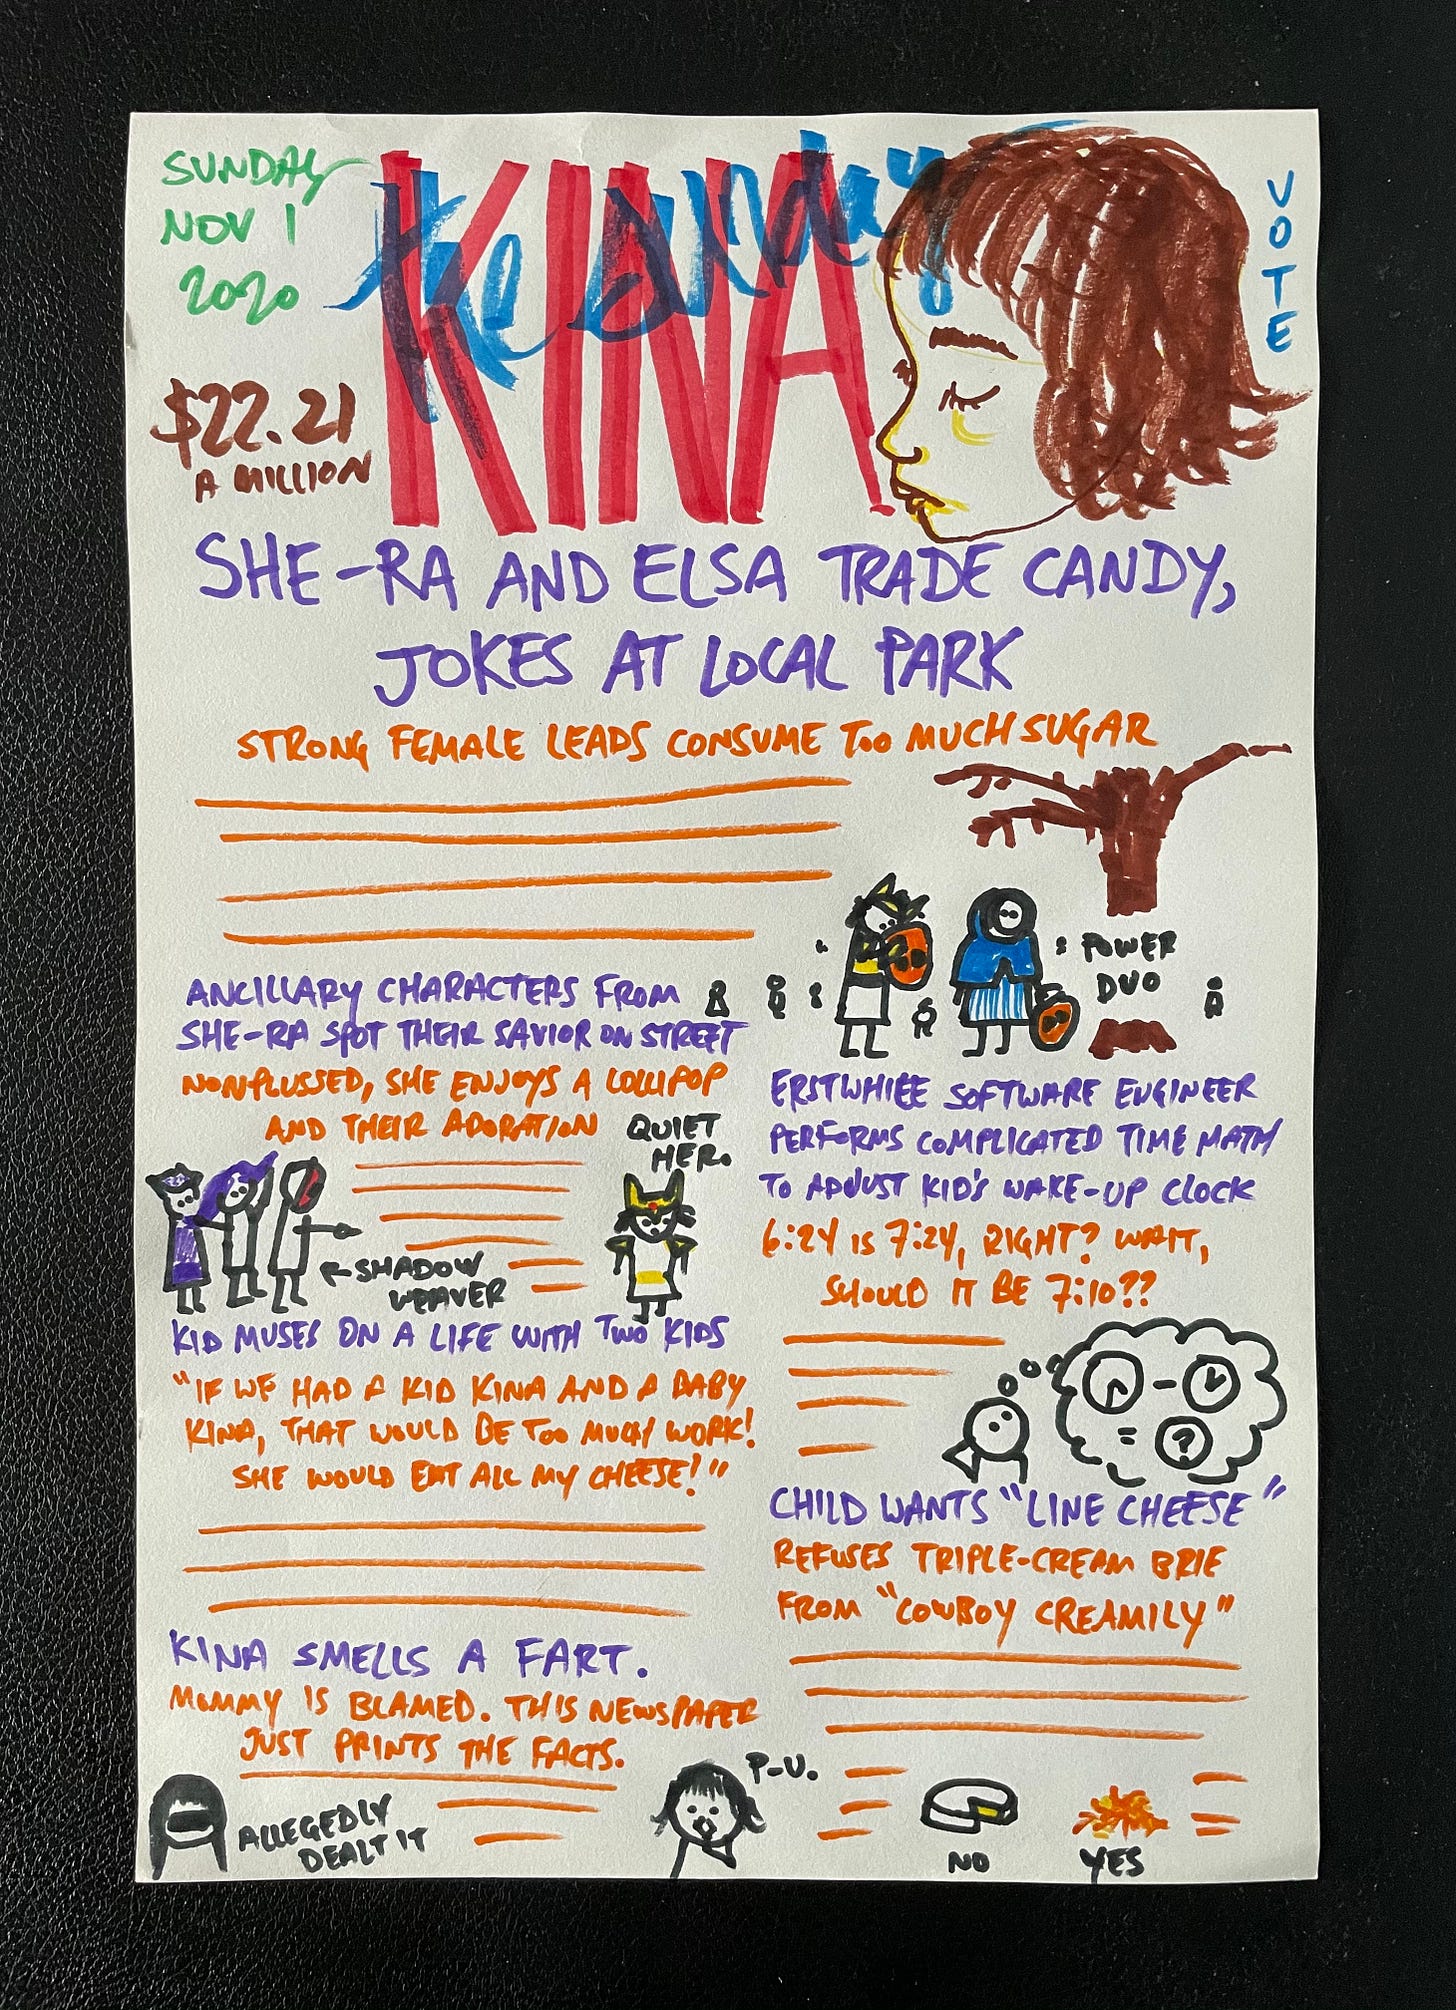 SUNDAY
NOV 1
2020
the Sunday
KINA
VOTE
$22.21
A MILLION
SHE-RA AND ELSA TRADE CANDY,
JOKES AT LOCAL PARK
STRONG FEMALE LEADS CONSUME TOO MUCH SUGAR
POWER
DUO
ANCILLARY CHARACTERS FROM
SHE-RA SPOT THEIR SAVIOR ON STREET
NONPLUSSED, SHE ENJOYS A LOLLIPOP
AND THEIR ADORATION
QUIET
HER.
←SHADOW
WEAVER
ERSTWHILE SOFTWARE ENGINEER
PERFORMS COMPLICATED TIME MATH
TO ADJUST KID'S WAKE-UP CLOCK
6:24 IS 7:24, RIGHT? WAIT,
SHOULD IT BE 7:10??
- = ?
KID MUSES ON A LIFE WITH TWO KIDS
"IF WE HAD A KID KINA AND A BABY
KINA, THAT WOULD BE TOO MUCH WORK!
SHE WOULD EAT ALL MY CHEESE!"
CHILD WANTS "LINE CHEESE"
REFUSES TRIPLE-CREAM BRIE
FROM "COWBOY CREAMILY"
NO
YES
KINA SMELLS A FART.
MOMMY IS BLAMED. THIS NEWSPAPER
JUST PRINTS THE FACTS.
ALLEGEDLY
DEALT IT
P-U.